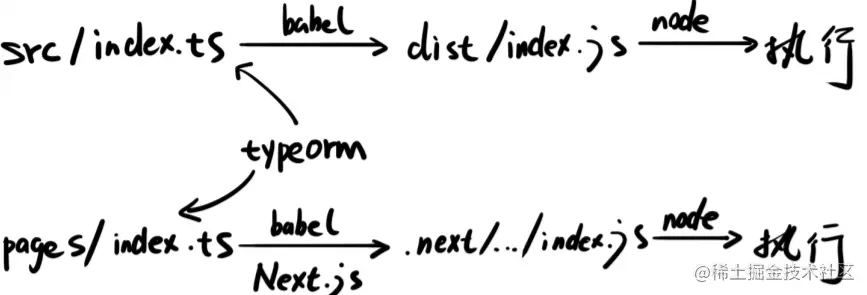 babel
node
src/index.ts
dist/index.js
执行
typeorm
babel
node
pages/index.ts
.next/.../index.js
执行
Next.js
@稀土掘金技术社区